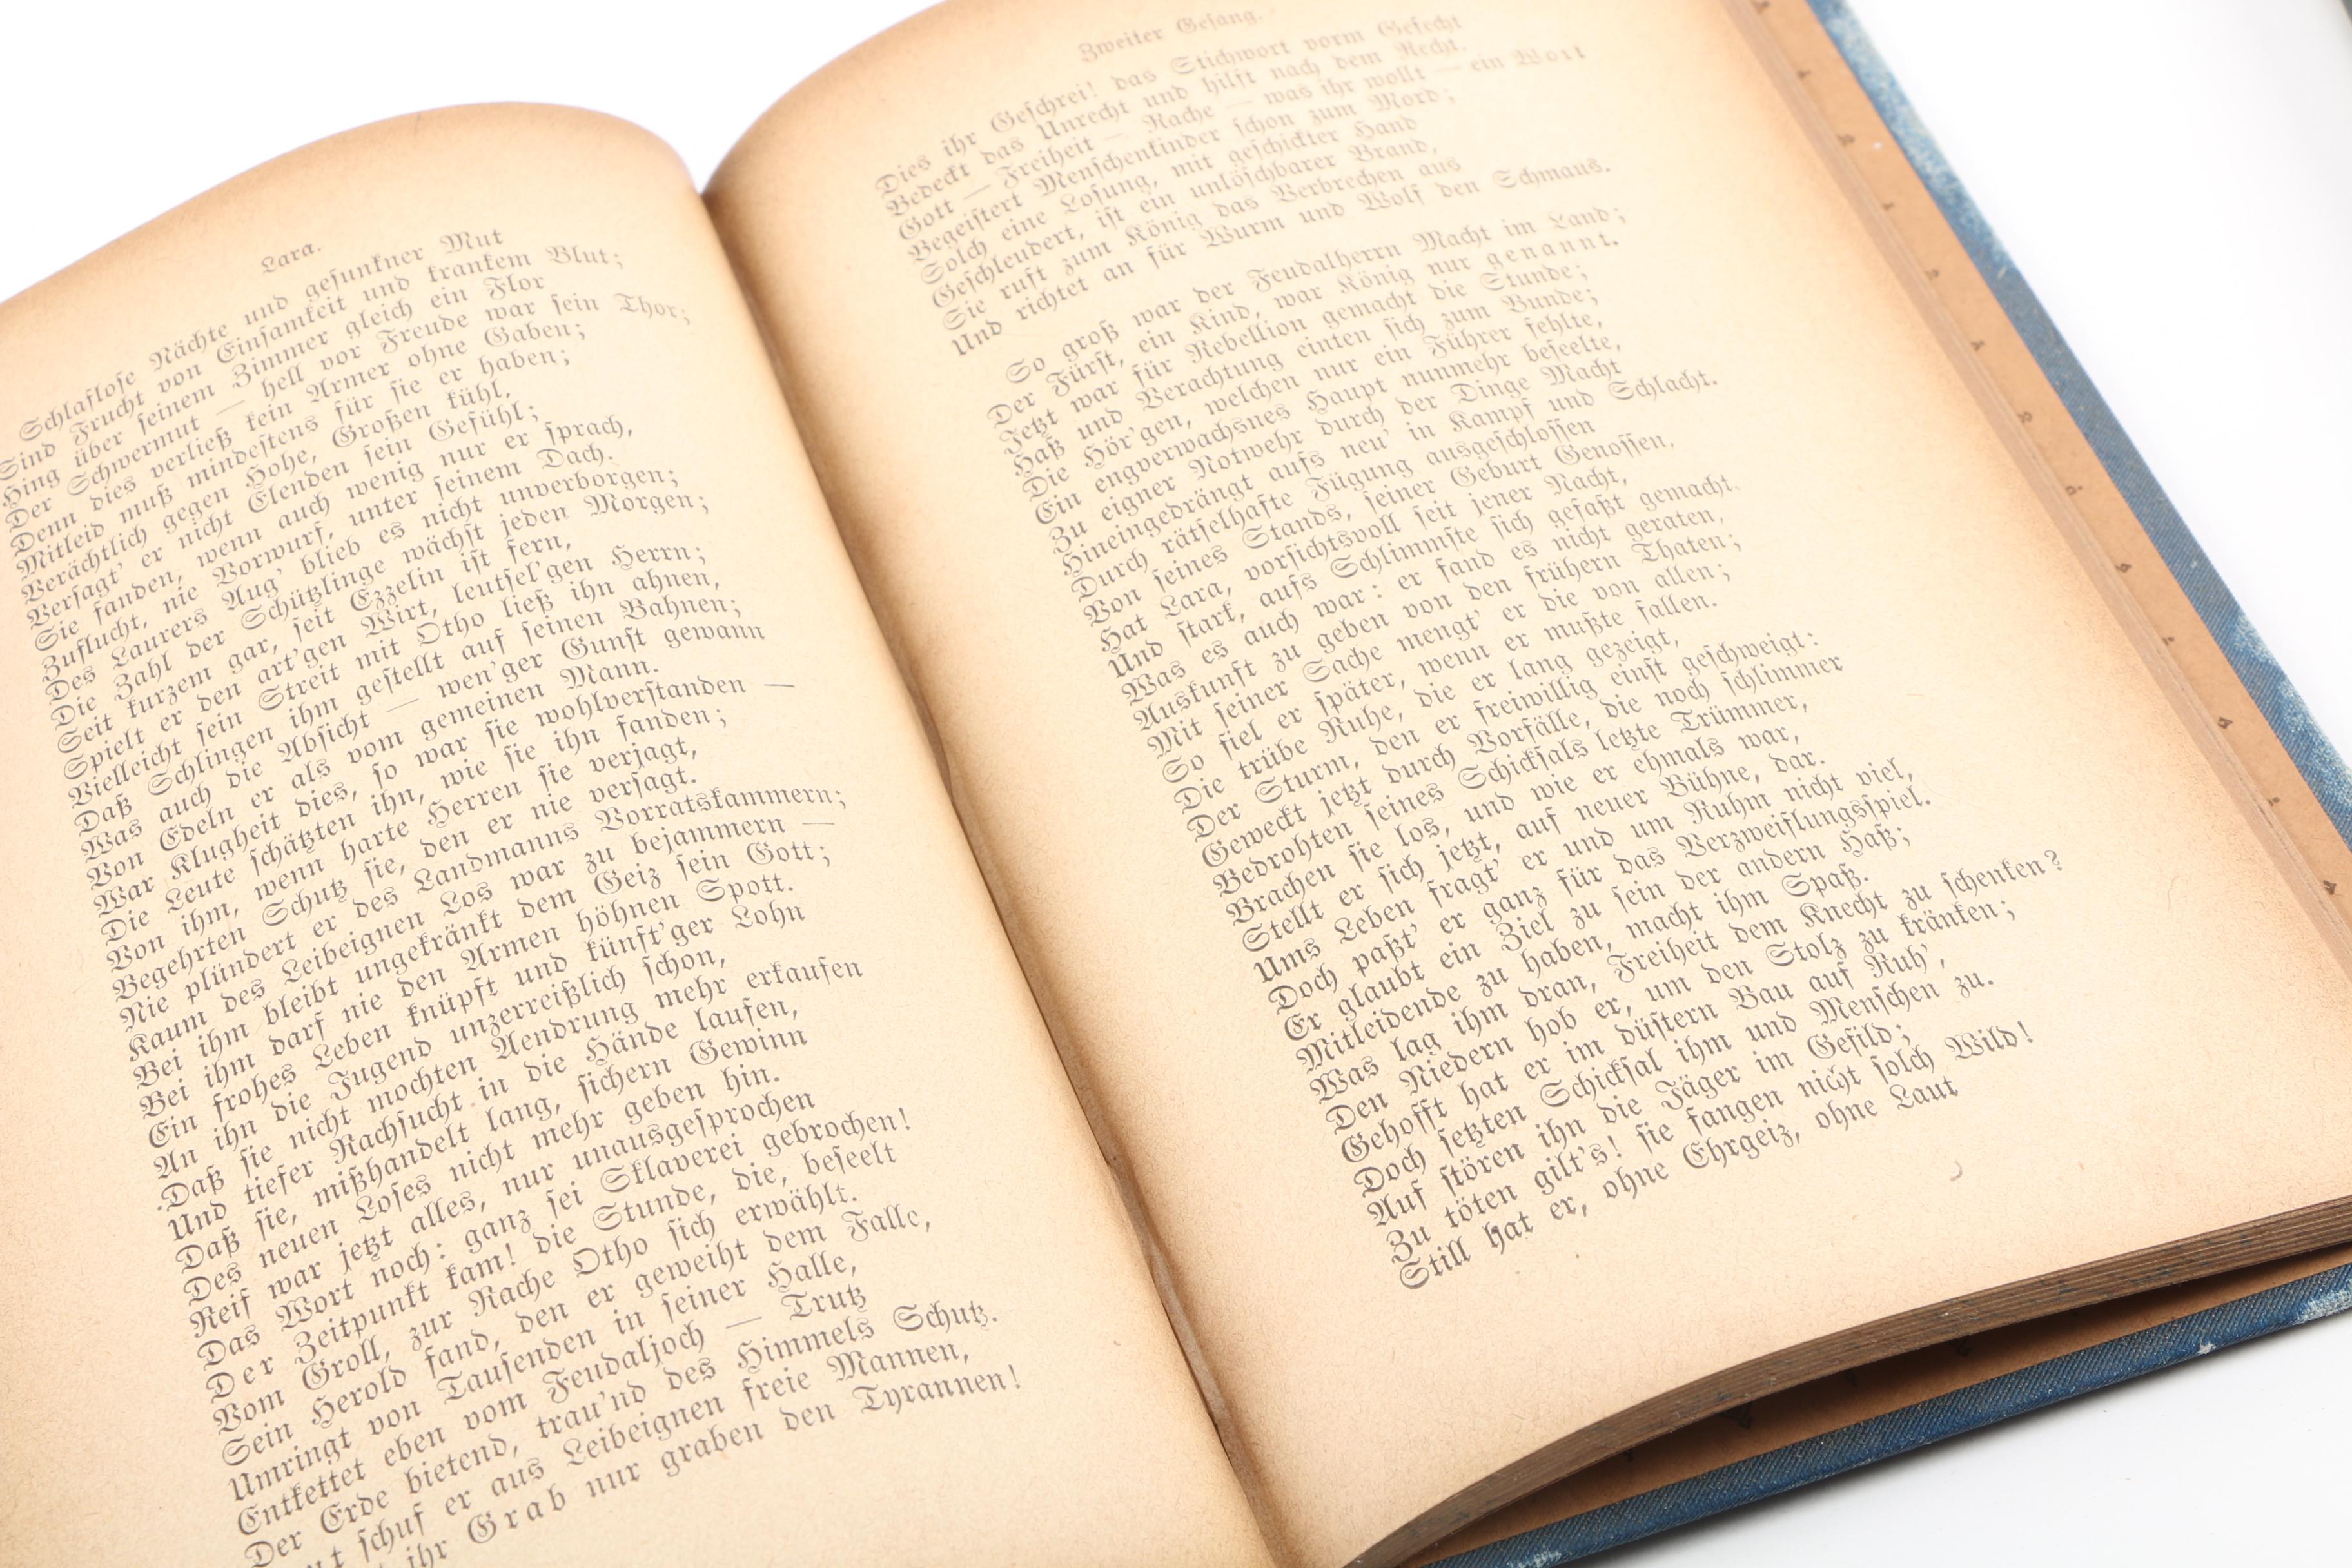 Lara.
Schlaflose Nächte und gesunkner Mut
Sind Frucht von Einsamkeit und krankem Blut;
Hing über seinem Zimmer gleich ein Flor
Der Schwermut — hell vor Freude war sein Thor;
Denn dies verließ kein Armer ohne Gaben;
Mitleid muß mindestens für sie er haben;
Verächtlich gegen Hohe, Großen kühl,
Versagt' er nicht Elenden sein Gefühl;
Sie fanden, wenn auch wenig nur er sprach,
Zuflucht, nie Vorwurf, unter seinem Dach.
Des Laurers Aug' blieb es nicht unverborgen;
Die Zahl der Schützlinge wächst jeden Morgen;
Seit kurzem gar, seit Ezzelin ist fern,
Spielt er den art'gen Wirt, leutsel'gen Herrn;
Vielleicht sein Streit mit Otho ließ ihn ahnen,
Daß Schlingen ihm gestellt auf seinen Bahnen;
Was auch die Absicht — wen'ger Gunst gewann
Von Edeln er als vom gemeinen Mann.
War Klugheit dies, so war sie wohlverstanden —
Die Leute schätzten ihn, wie sie ihn fanden;
Von ihm, wenn harte Herren sie verjagt,
Begehrten Schutz sie, den er nie versagt.
Nie plündert er des Landmanns Vorratskammern;
Kaum des Leibeignen Los war zu bejammern —
Bei ihm bleibt ungekränkt dem Geiz sein Gott;
Bei ihm darf nie den Armen höhnen Spott.
Ein frohes Leben knüpft und künft'ger Lohn
An ihn die Jugend unzerreißlich schon,
Daß sie nicht mochten Aendrung mehr erkaufen
Und tiefer Rachsucht in die Hände laufen,
Daß sie, mißhandelt lang, sichern Gewinn
Des neuen Loses nicht mehr geben hin.
Reif war jetzt alles, nur unausgesprochen
Das Wort noch: ganz sei Sklaverei gebrochen!
Der Zeitpunkt kam! die Stunde, die, beseelt
Vom Groll, zur Rache Otho sich erwählt.
Sein Herold fand, den er geweiht dem Falle,
Umringt von Tausenden in seiner Halle,
Entkettet eben vom Feudaljoch — Trutz
Der Erde bietend, trau'nd des Himmels Schutz.
schuf er aus Leibeignen freie Mannen,
ihr Grab nur graben den Tyrannen!
Zweiter Gesang.
Dies ihr Geschrei! das Stichwort vorm Gefecht
Bedeckt das Unrecht und hilft nach dem Recht.
Gott — Freiheit — Rache — was ihr wollt — ein Wort
Begeistert Menschenkinder schon zum Mord;
Solch eine Losung, mit geschickter Hand
Geschleudert, ist ein unlöschbarer Brand,
Sie ruft zum König das Verbrechen aus
Und richtet an für Wurm und Wolf den Schmaus.
So groß war der Feudalherrn Macht im Land;
Der Fürst, ein Kind, war König nur genannt.
Jetzt war für Rebellion gemacht die Stunde;
Haß und Verachtung einten sich zum Bunde;
Die Hör'gen, welchen nur ein Führer fehlte,
Ein engverwachsnes Haupt nunmehr beseelte,
Zu eigner Notwehr durch der Dinge Macht
Hineingedrängt aufs neu' in Kampf und Schlacht.
Durch rätselhafte Fügung ausgeschlossen
Von seines Stands, seiner Geburt Genossen,
Hat Lara, vorsichtsvoll seit jener Nacht,
Und stark, aufs Schlimmste sich gefaßt gemacht.
Was es auch war: er fand es nicht geraten,
Auskunft zu geben von den frühern Thaten;
Mit seiner Sache mengt' er die von allen;
So fiel er später, wenn er mußte fallen.
Die trübe Ruhe, die er lang gezeigt,
Der Sturm, den er freiwillig einst geschweigt:
Geweckt jetzt durch Vorfälle, die noch schlimmer
Bedrohten seines Schicksals letzte Trümmer,
Brachen sie los, und wie er ehmals war,
Stellt er sich jetzt, auf neuer Bühne, dar.
Ums Leben fragt' er und um Ruhm nicht viel,
Doch paßt' er ganz für das Verzweiflungsspiel.
Er glaubt ein Ziel zu sein der andern Haß;
Mitleidende zu haben, macht ihm Spaß.
Was lag ihm dran, Freiheit dem Knecht zu schenken?
Den Niedern hob er, um den Stolz zu kränken;
Gehofft hat er im düstern Bau auf Ruh',
Doch setzten Schicksal ihm und Menschen zu.
Auf stören ihn die Jäger im Gefild;
Zu töten gilt's! sie fangen nicht solch Wild!
Still hat er, ohne Ehrgeiz, ohne Laut